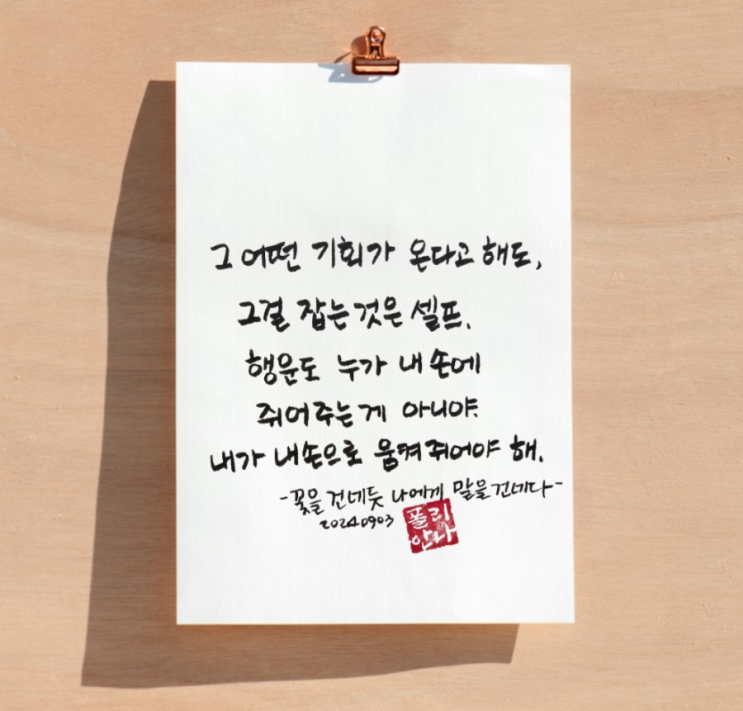 그 어떤 기회가 온다고 해도,
그걸 잡는것은 셀프.
행운도 누가 내 손에
쥐어주는게 아니야.
내가 내손으로 움켜쥐어야 해.
-꽃을 건네듯 나에게 말을건네다-
20240903
폴리
안나